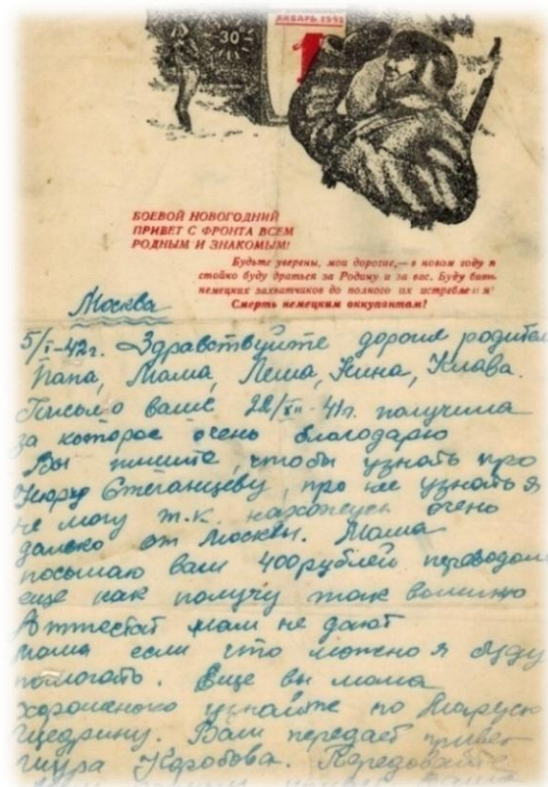 ЯНВАРЬ 1942
1
30
БОЕВОЙ НОВОГОДНИЙ
ПРИВЕТ С ФРОНТА ВСЕМ
РОДНЫМ И ЗНАКОМЫМ!
Будьте уверены, мои дорогие,— в новом году я
стойко буду драться за Родину и за вас. Буду бить
немецких захватчиков до полного их истребления!
Смерть немецким оккупантам!
Москва
5/I-42г. Здравствуйте дорогие родители
Папа, Мама, Леша, Нина, Клава.
Письмо ваше 22/XII-41г. получила
за которое очень благодарю
Вы пишите, чтобы узнать про
Нюру Стеганцеву, про нее узнать я
не могу т.к. нахожусь очень
далеко от Москвы. Мама
посылаю вам 400 рублей переводом
еще как получу так вышлю
Аттестат нам не дают
мама если что можно я буду
помогать. Еще вы мама
хорошенько узнайте по Марусю
Щедрину. Вам передает привет
Шура Коробова. Передовайте